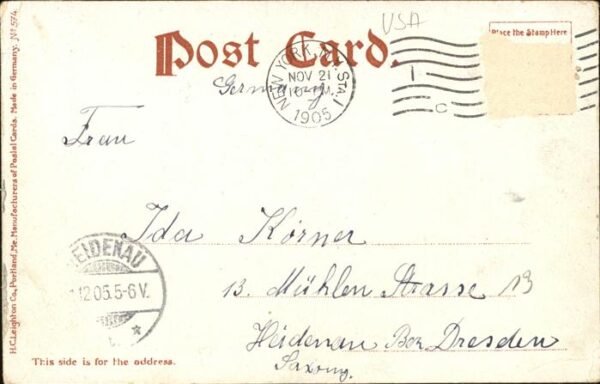 USA
Place the Stamp Here
Post Card.
NEW YORK, N.Y. STA. I
NOV 21
1905
I
C
Germany
Frau
Ida Körner
13. Mühlen Strasse 13
Heidenau Bez Dresden
Saxony.
HEIDENAU
12.05.5-6V.
This side is for the address.
H.C. Leighton Co., Portland, Me. Manufacturers of Postal Cards. Made in Germany. No. 574